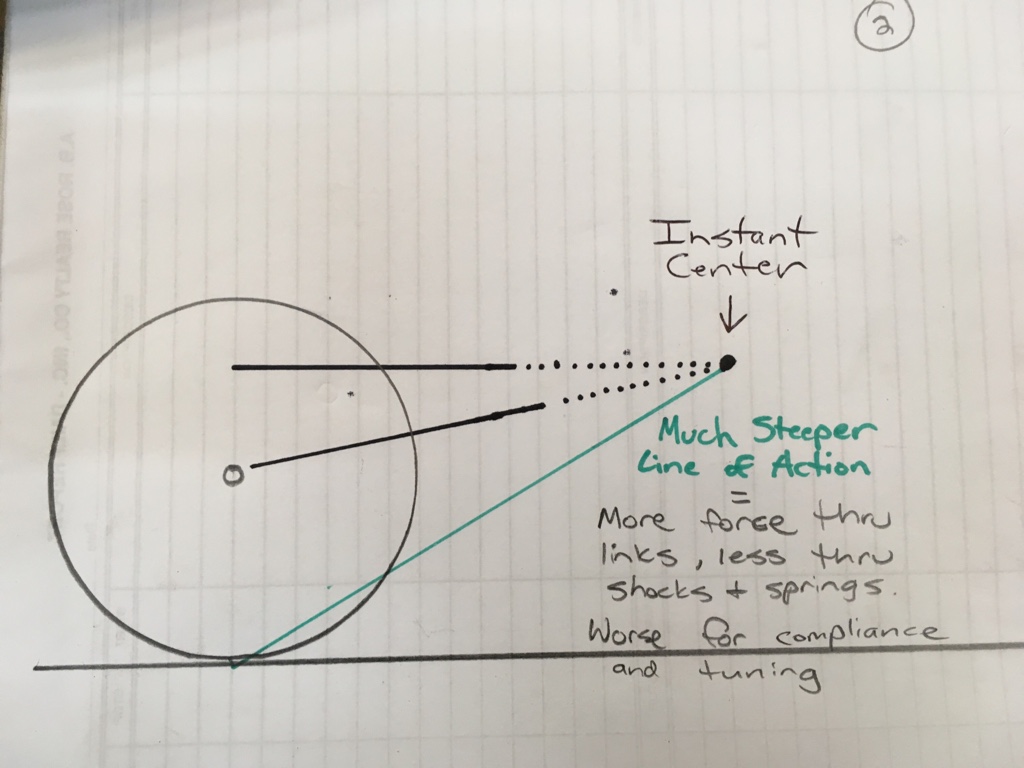 2
Instant
Center
Much Steeper
Line of Action
=
More force thru
links, less thru
shocks + springs.
Worse for compliance
and tuning